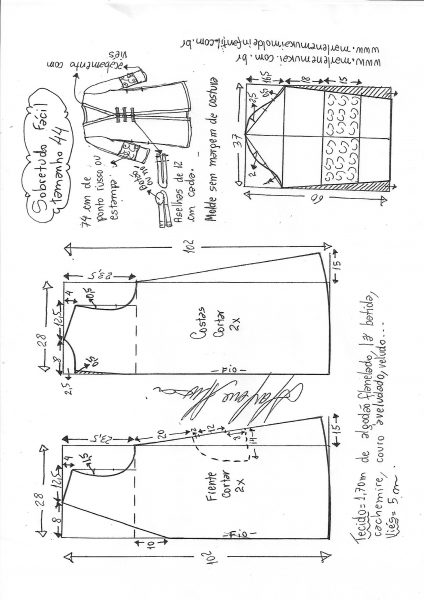 Sobretudo Fácil
tamanho 44
Acabamento com
viés
74 cm de
ponto russo ou
estampa
Aselhas de 12
cm cada.
Molde sem margem de costura
www.marlenemukai.com.br
www.marlenemukaimoldeinfantil.com.br
16,5
18
15
2,5
2
37
60
102
23,5
4
12,5
28
8
2,5
1,5
15
Costas
Cortar
2x
Fio
23,5
20
12
14
4
12,5
1,5
28
8
10
15
102
Frente
Cortar
2x
Fio
Tecido = 1,70m de algodão flanelado, lã batida,
cachemire, couro aveludado, veludo...
Viés = 5 cm